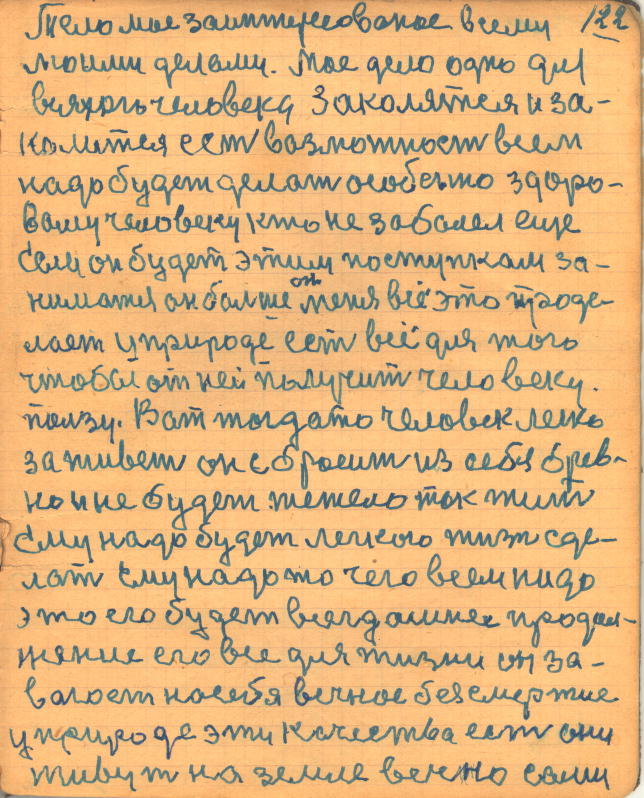 Тело мое заинтересованое всеми 122
моими делами. Мое дело одно для
всякого человека Заколятся и за-
колится ест возможност всем
надо будет делат особенно здоро-
вому человеку кто не заболел еще
Если он будет этим поступкам за-
ниматся он больше он меня всё это проде-
лает у природе ест всё для того
чтобы от ней получит человеку.
ползу. Вот тогдато человек легко
заживет он сбросит из себя брев-
но и не будет тежело так жит
Ему надо будет легкого жизн сде-
лат Ему надо то чего всем надо
это его будет всегдашнее продол-
жение его все для жизни он за-
воюет на себя вечное безсмертие
у природе эти качества ест они
живут на земле вечно сами